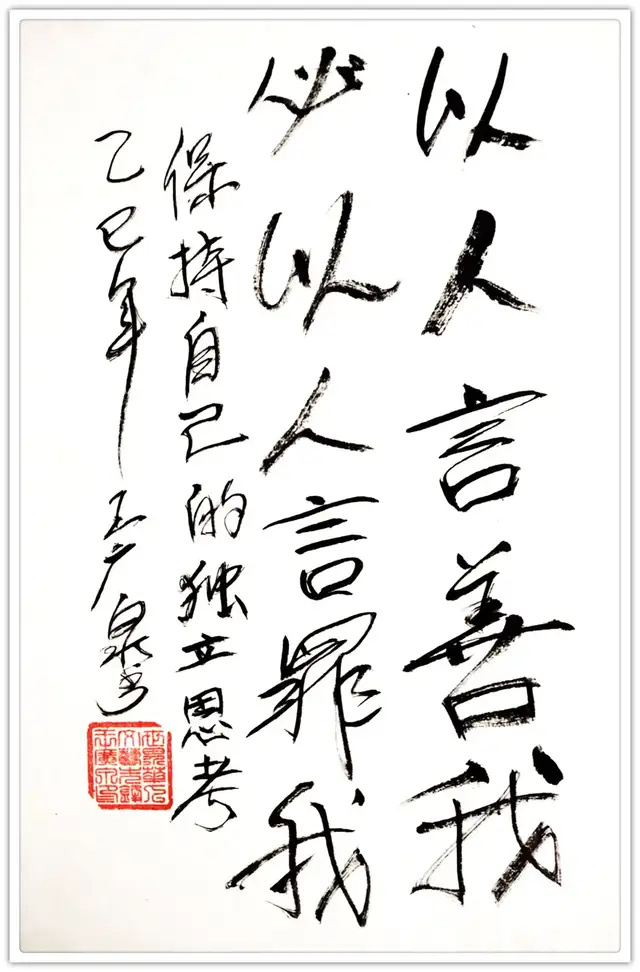 以人言善我
必以人言罪我
保持自己的独立思考
乙巳年 王广泉书